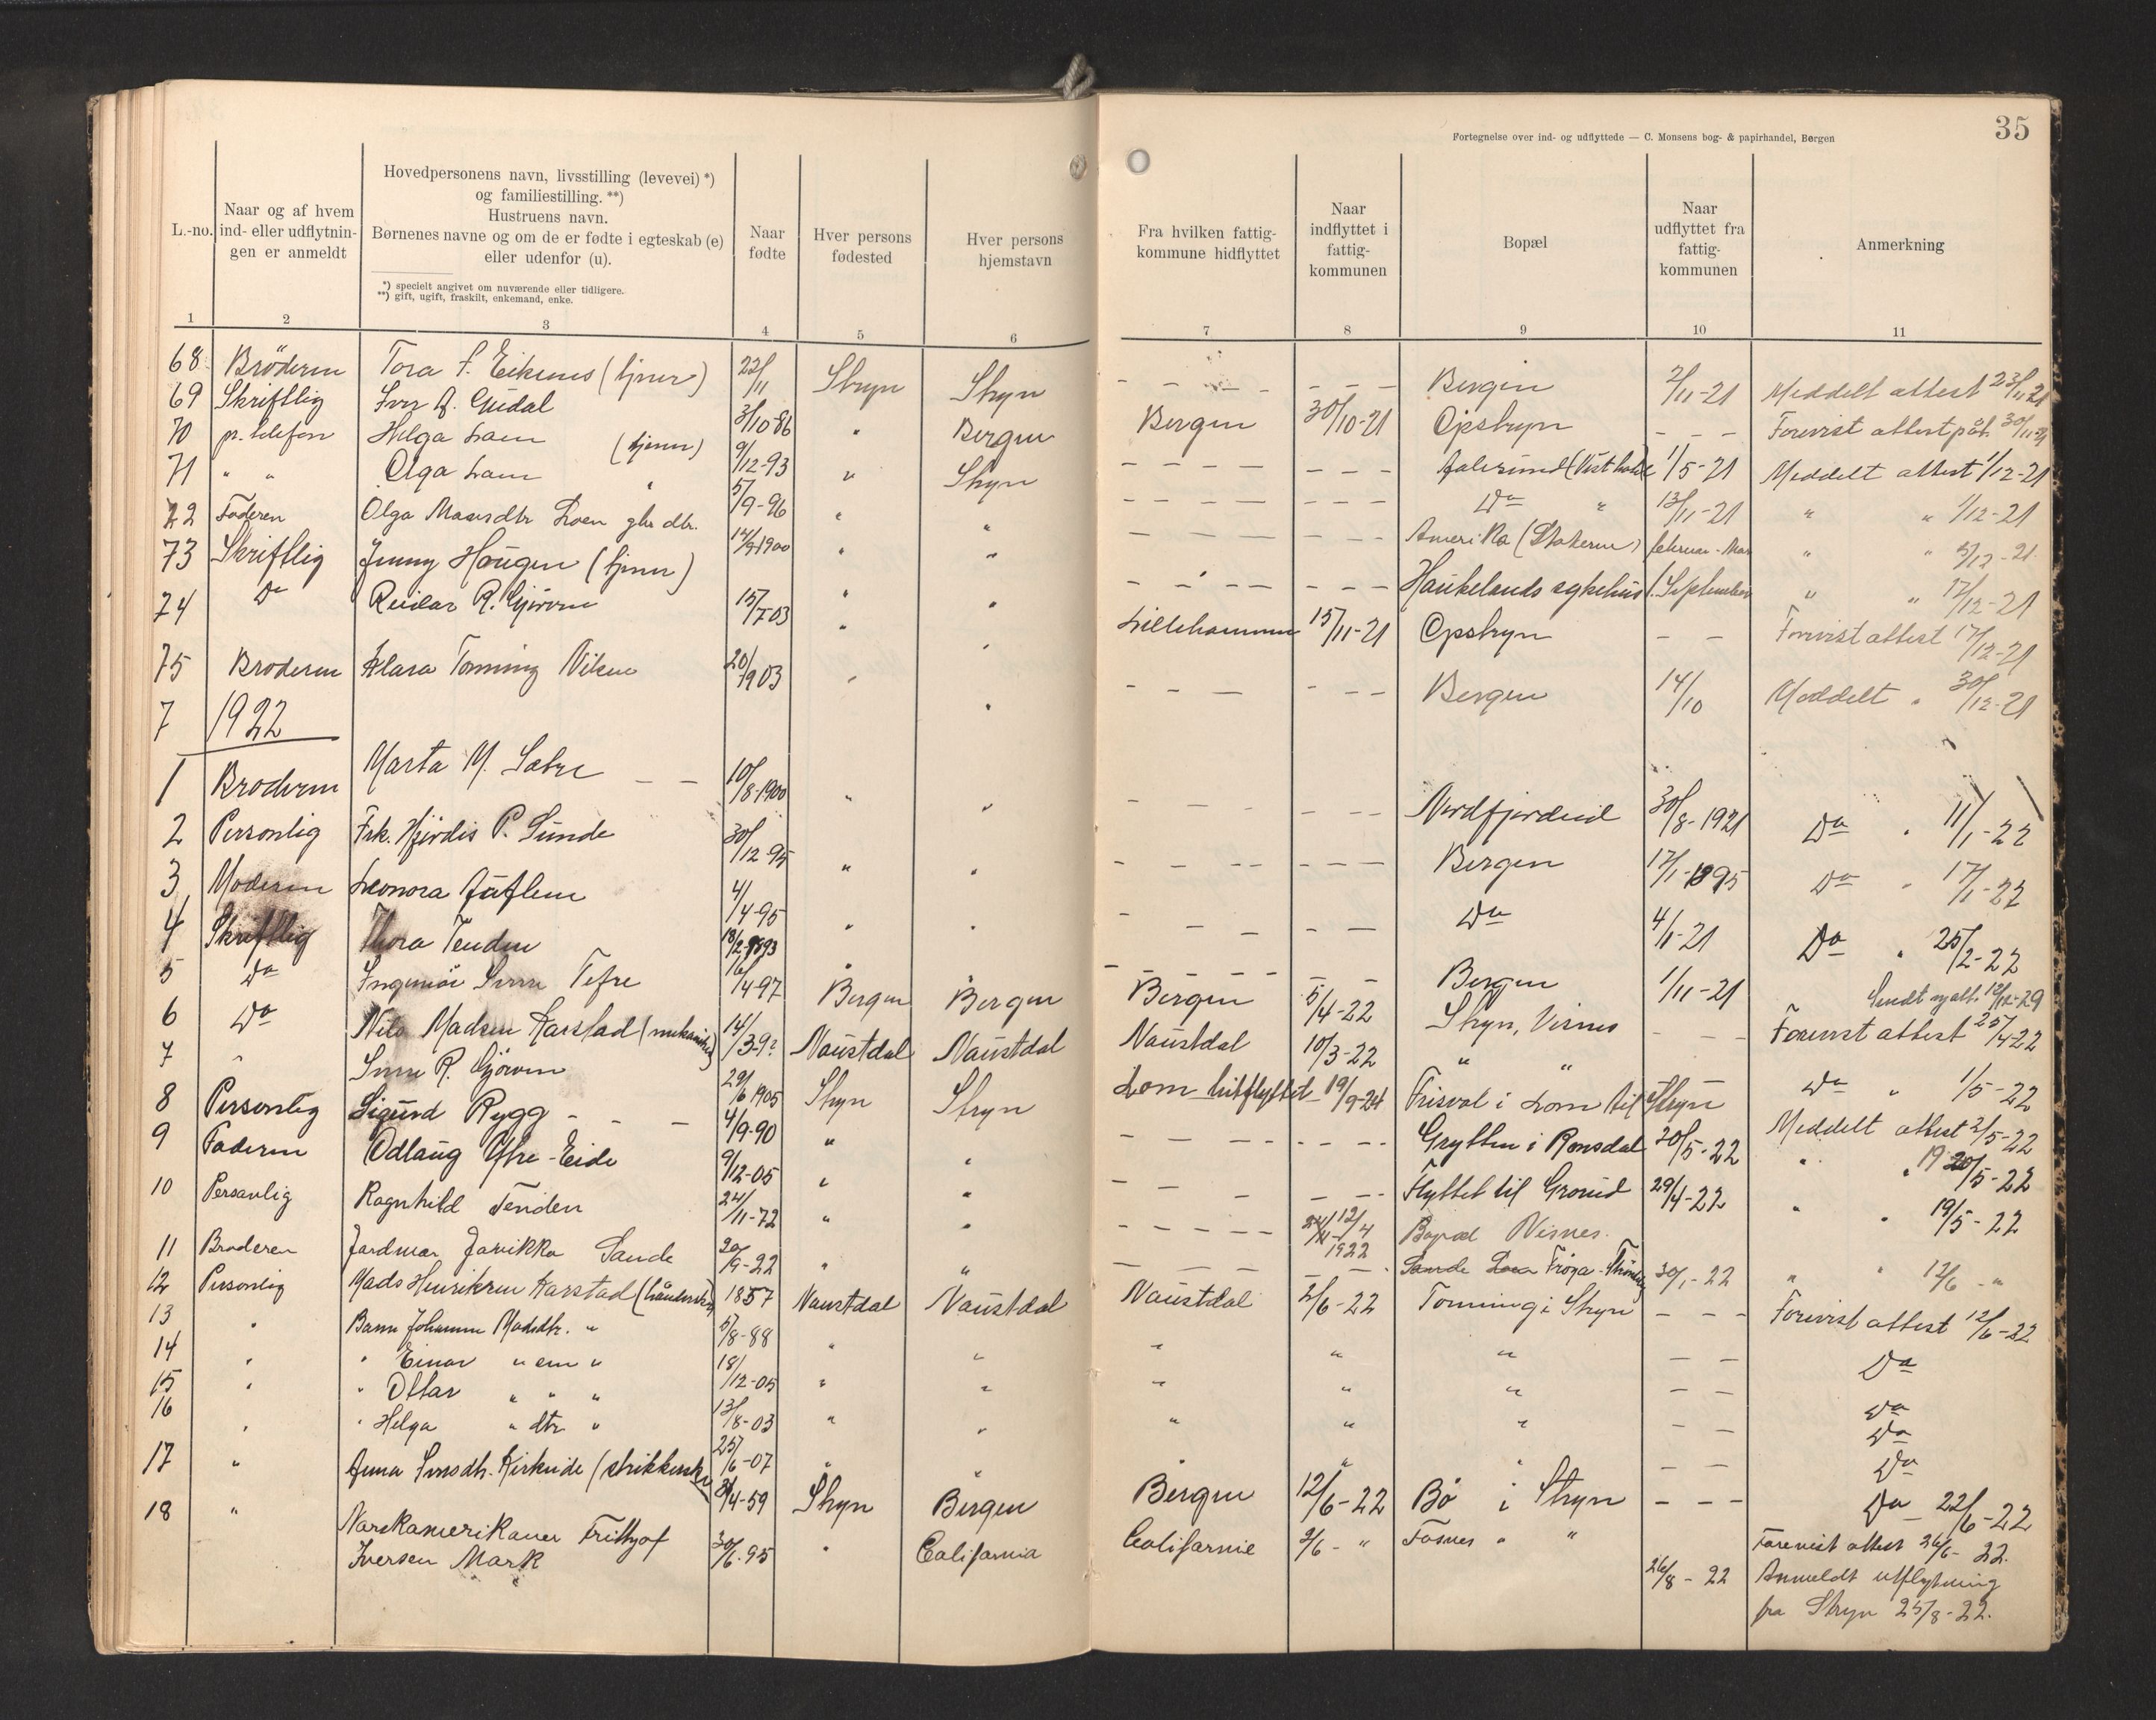 35
Fortegnelse over ind- og udflyttede — C. Monsens bog- & papirhandel, Bergen
L.-no.
Naar og af hvem
ind- eller udflytnin-
gen er anmeldt
Hovedpersonens navn, livsstilling (levevei) *)
og familiestilling. **)
Hustruens navn.
Børnenes navne og om de er fødte i egteskab (e)
eller udenfor (u).
*) specielt angivet om nuværende eller tidligere.
**) gift, ugift, fraskilt, enkemand, enke.
Naar
fødte
Hver persons
fødested
Hver persons
hjemstavn
Fra hvilken fattig-
kommune hidflyttet
Naar
indflyttet i
fattig-
kommunen
Bopæl
Naar
udflyttet fra
fattig-
kommunen
Anmerkning
1 2 3 4 5 6 7 8 9 10 11
68 Broderen Tora S. Eikenes (tjener) 22/11 Stryn Stryn - - - - - - - Bergen 2/11-21 Meddelt attest 23/11 21
69 Skriftlig Iver A. Guddal 3/10-86 " Bergen Bergen 30/10-21 Opstryn - - - Forevist attest 30/11-21
70 pr. telefon Helga Loen (tjener) 9/12-93 " Stryn - - - - - - - Aalesund 1/5-21 Meddelt attest 1/12-21
71 " " Olga Loen " 5/9-96 " " - - - - - - - Do " 13/11-21 " " 1/12-21
72 Faderen Olga Masesdtr Loen gbr dtr. 14/9-1900 " " - - - - - - - Amerika (Staterne) februar - Mars " " 5/12-21
73 Skriftlig Jenny Haugen (tjener) " " - - - - - - - Haukelands sykehus 1. September " " 17/12-21
74 Do Reidar R. Gjørven 15/7-03 " " Lillehammer 15/11-21 Opstryn - - Forevist attest 17/12-21
75 Broderen Klara Tonning Viken 20/9 03 " " - - - - - - Bergen 14/10 Meddelt " 30/12-21
7 1922
1 Broderen Marta M. Sætre - - 10/8-1900 " " - - - - - Nordfjordeid 30/8-1921 Do " 11/1-22
2 Personlig Frk. Hjørdis P. Sunde 30/12-95 " " - - - - - - - Bergen 17/1-1895 Do " 17/1-22
3 Moderen Leonora Auflem 4/4-95 " " - - - - - Do 4/1-21 Do " 25/2-22
4 Skriftlig Thora Tenden 18/2-1893 " " - - - - - - - Bergen 1/11-21 Sendt ny att. 12/12-29
5 Do 16/4-97 Bergen Bergen Bergen 5/4-22 Stryn, Visnes - - Forevist attest 25/4-22
6 Do Nils Madsen Karstad 14/3-9? Naustdal Naustdal Naustdal 10/3-22 " " Do " 1/5-22
7 " R. Gjørven 29/6 1905 Stryn Stryn Lom hitflyttet 19/9-24 Frisvol i Lom til Stryn Meddelt attest 2/5-22
8 Personlig Sigurd Rygg - - - 4/9-90 " " - - - - - - - Grytten i Romsdal 20/5-22 " " 19 20/5-22
9 Faderen Odlaug Yfre-Eide 9/12-05 " " - - - - - Flyttet til Grorud 29/4-22 " " 19/5-22
10 Personlig Ragnhild Tenden 24/11-72 " " - - - - - 12/4 1922 Bopæl Visnes.
11 Broderen Sande 20/9-22 " " - - - - - Sande Frøya - 30/1-22 " " 12/6 - "
12 Personlig Mads Henriksen Karstad 1857 Naustdal Naustdal Naustdal 2/6-22 Tonning i Stryn - - - Forevist attest 12/6-22
13 " Barn Johanne Madsdtr. " 5/8-88 " " " " " - - Do
14 " " Einar " sen " 18/12-05 " " " " " - - Do
15 " " Ottar " " " 13/8-03 " " " " " - - Do
16 " " Helga " dtr. " 25/6-07 " " " " " - - Do
17 " Anna Kirkeide 8/4-59 Stryn Bergen Bergen 12/6-22 Bø i Stryn - - - Do 22/6-22
18 " Norskamerikaner Frithjof 30/6-95 " California Californie 2/6 - " Fosnes " " Forevist attest 26/6-22.
Iversen Mark 26/8-22 Anmeldt utflytning
fra Stryn 25/8-22.